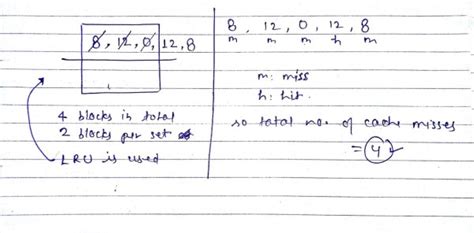 8, 12, 0, 12, 8
4 blocks in total
2 blocks per set
LRU is used
8, 12, 0, 12, 8
m m m h m
m: miss
h: hit.
so total no. of cache misses
= 4